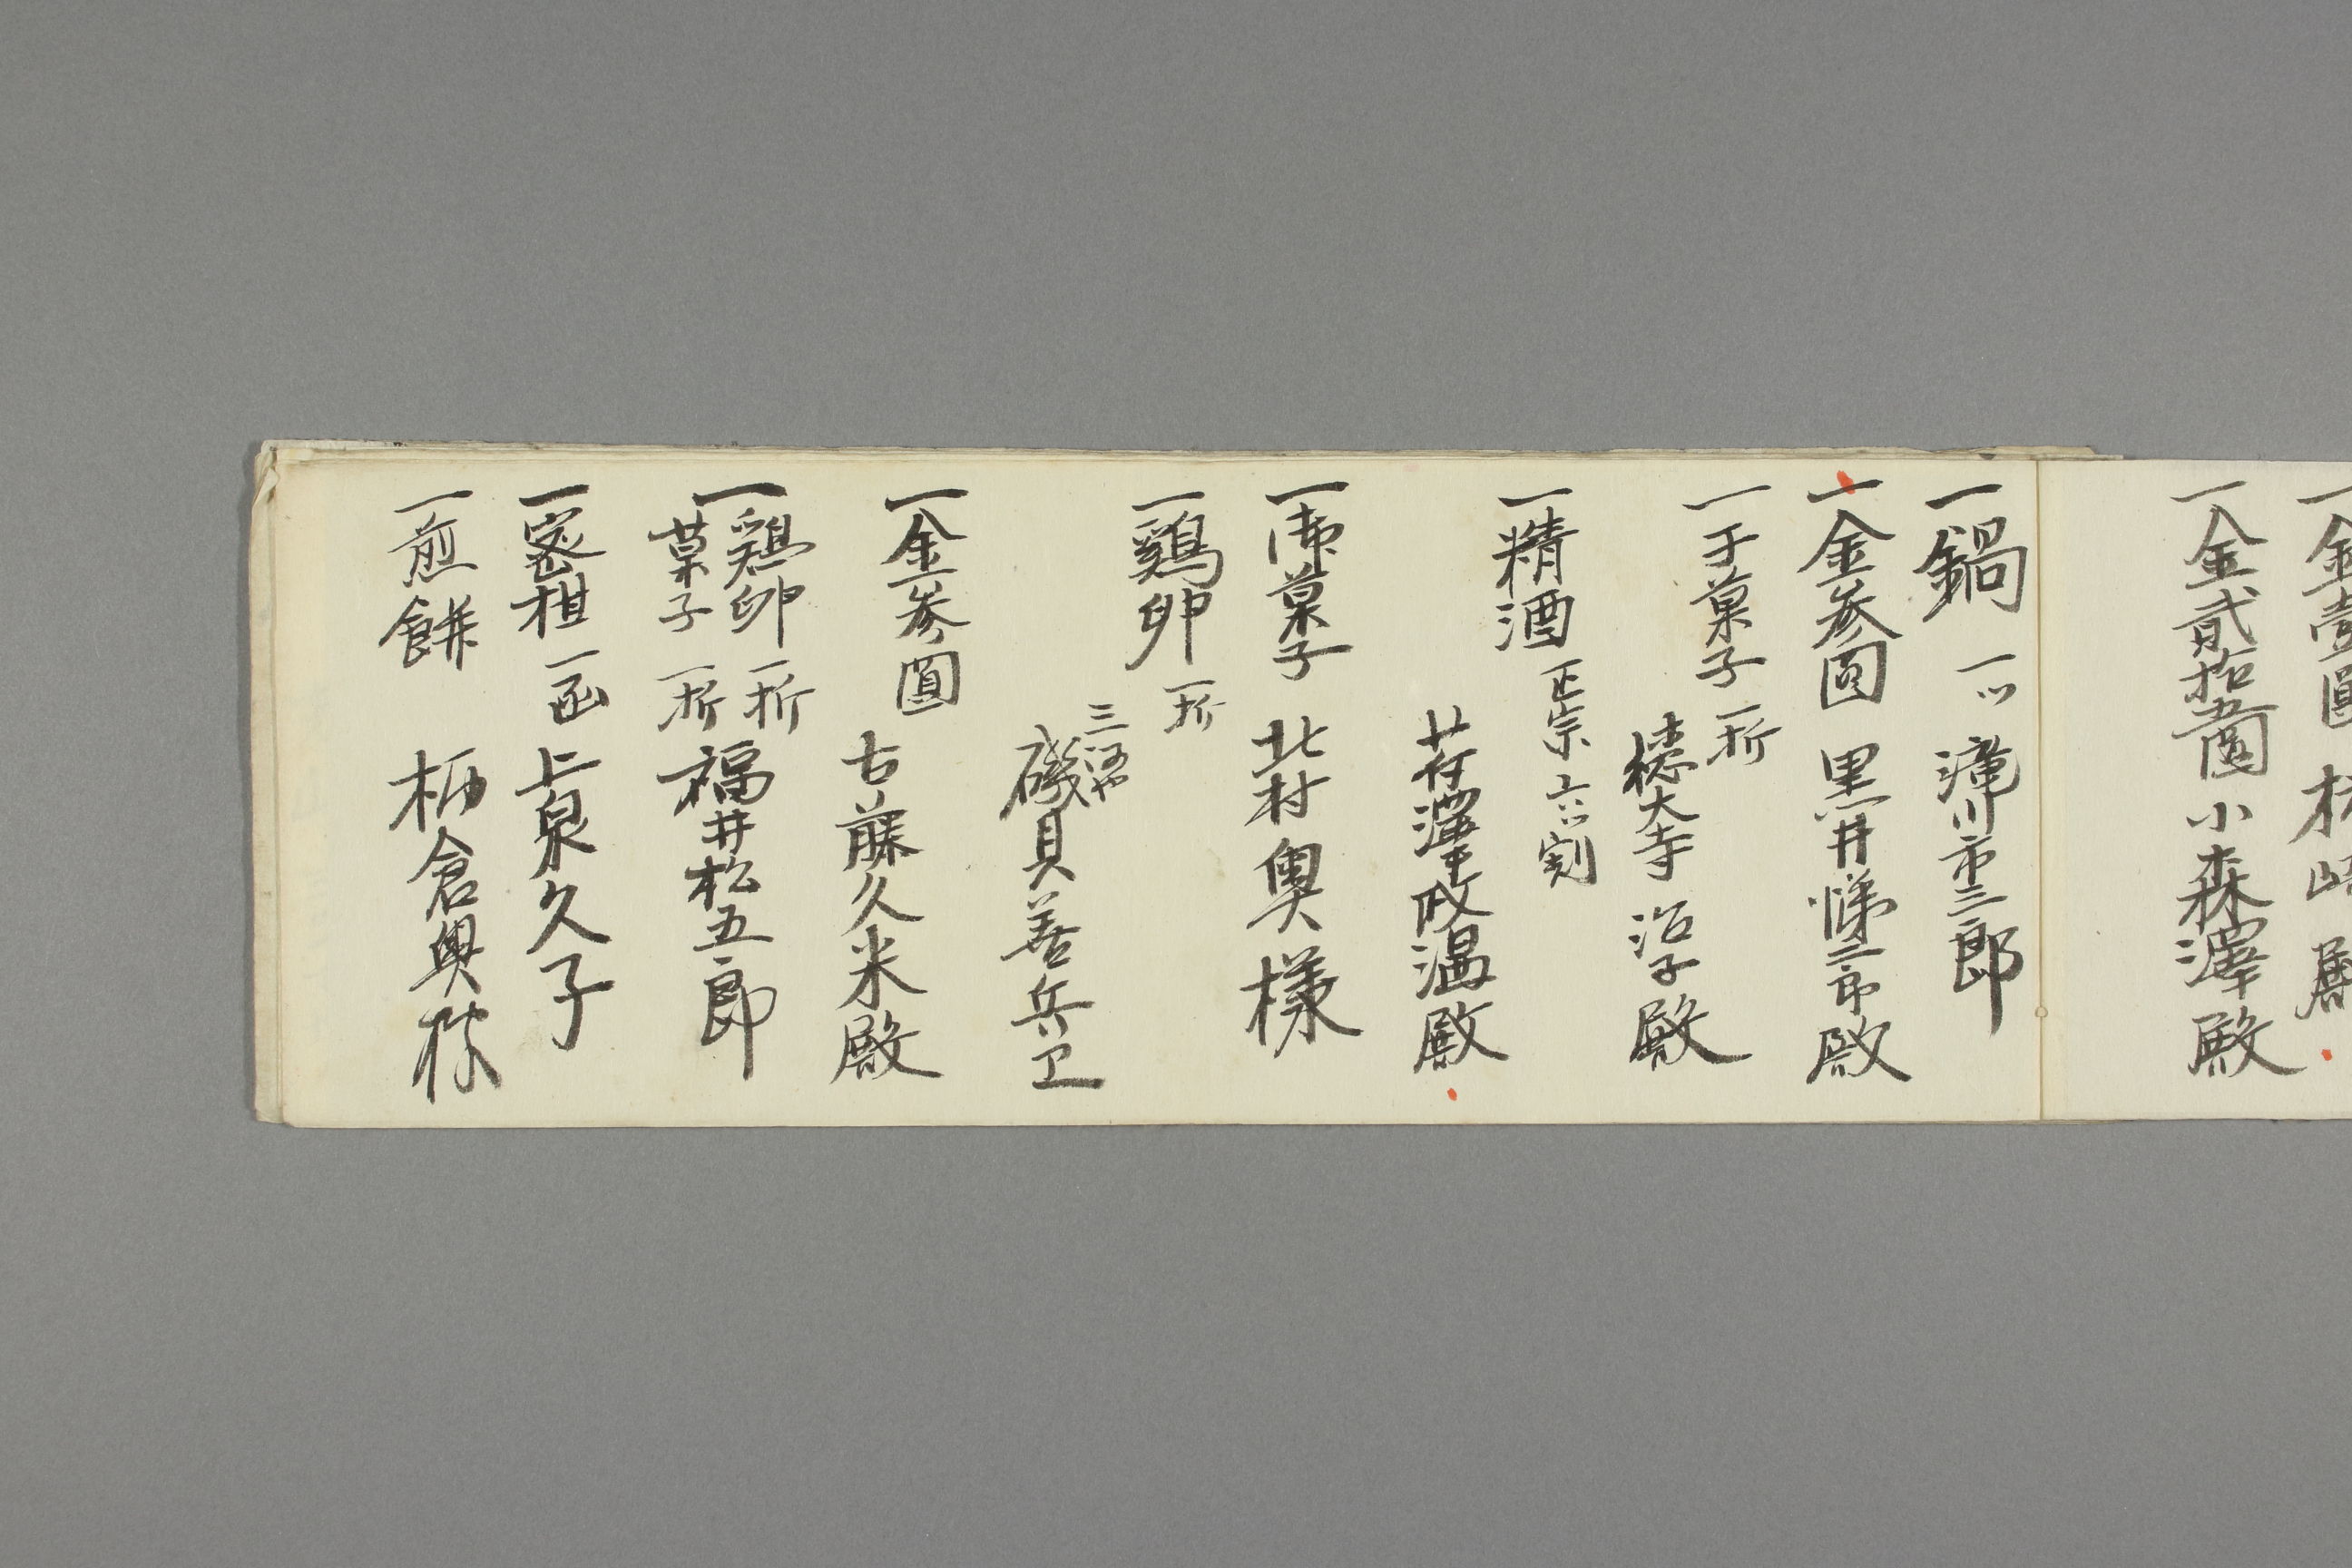 一金壹圓
一金貳拾五圓 小森澤殿
一鍋 一ツ 滝川市三郎
一金参圓 黒井悌二郎殿
一干菓子 一折
大寺治子殿
一精酒 正宗
澤政温殿
一御菓子 北村奥様
一鶏卵 一折
磯貝善兵卫
一金参圓 古藤久米殿
一鶏卵 一折
菓子 一折 福井松五郎
一密柑 一函 上泉久子
一煎餅 栃倉奥様